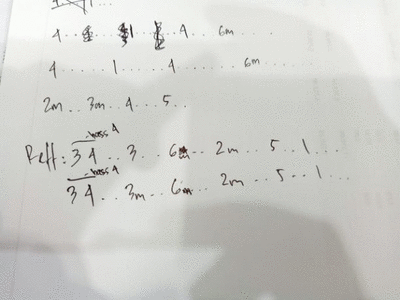 4 . . . . 1 . . . . 4 . . . . 6m . . . . .
4 . . . . . 1 . . . . . 4 . . . . . . . . . 6m . . . . .
2m . . 3m . . 4 . . 5 . .
bass 4
Reff : 3 4 . . 3 . . . 6m . . 2m . . . 5 . . 1 . . .
bass 4
3 4 . . . 3m . . 6m . . . 2m . . . 5 . . 1 . . .